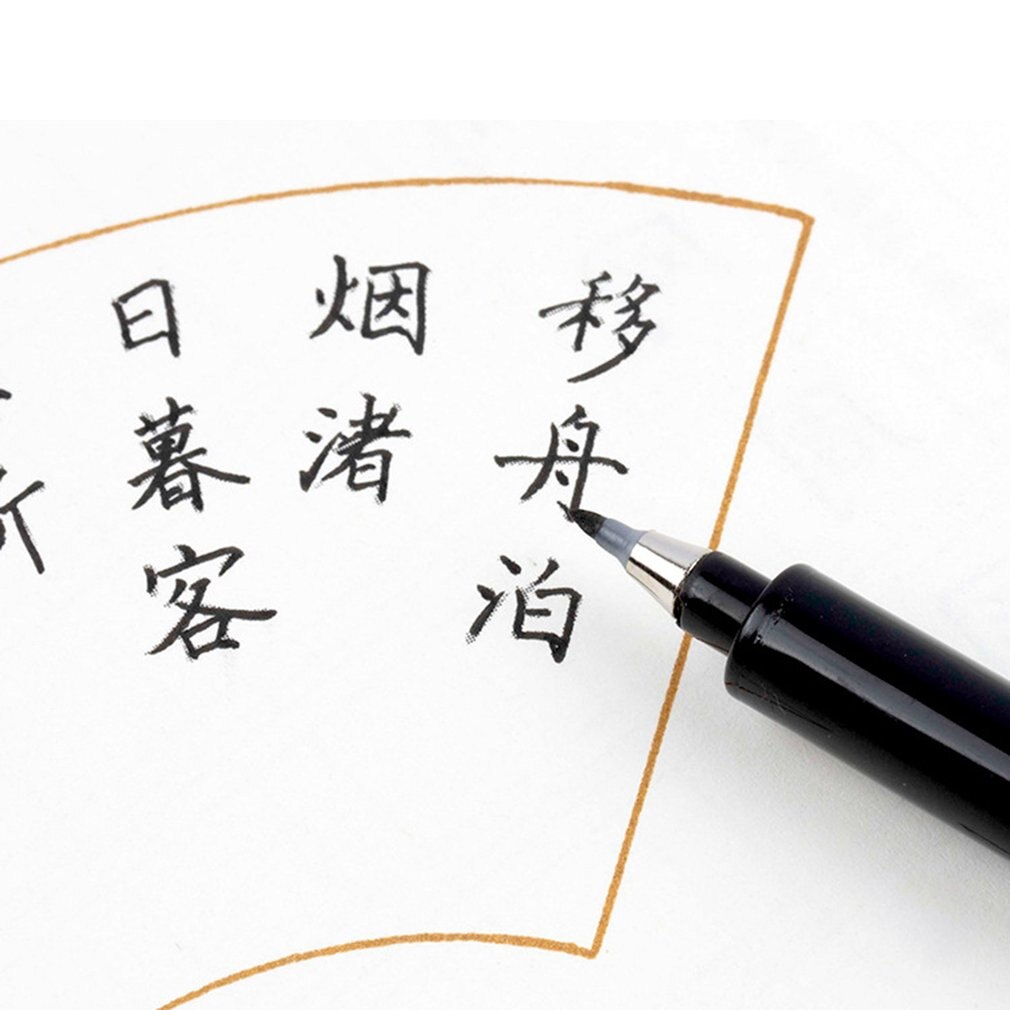 移舟泊
烟渚
日暮客